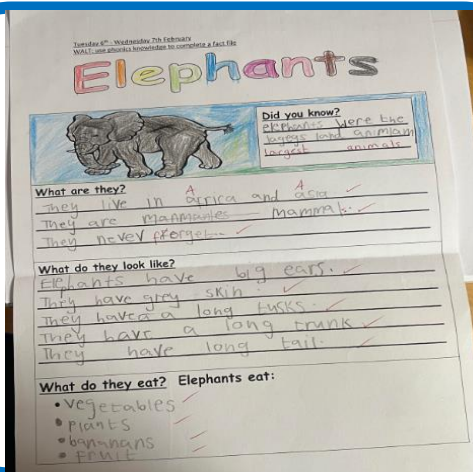 Tuesday 6th - Wednesday 7th February
WALT: use phonics knowledge to complete a fact file
Elephants
Did you know?
elephants were the
lagegs land animlam
largest animals
What are they?
A A
They live in africa and asia.
They are manmanles mammals.
They never forget.
What do they look like?
Elephants have big ears.
They have grey skin.
They have a a long tusks.
They have a long trunk.
They have long tail.
What do they eat? Elephants eat:
• vegetables
• plants
• bananans
• fruit